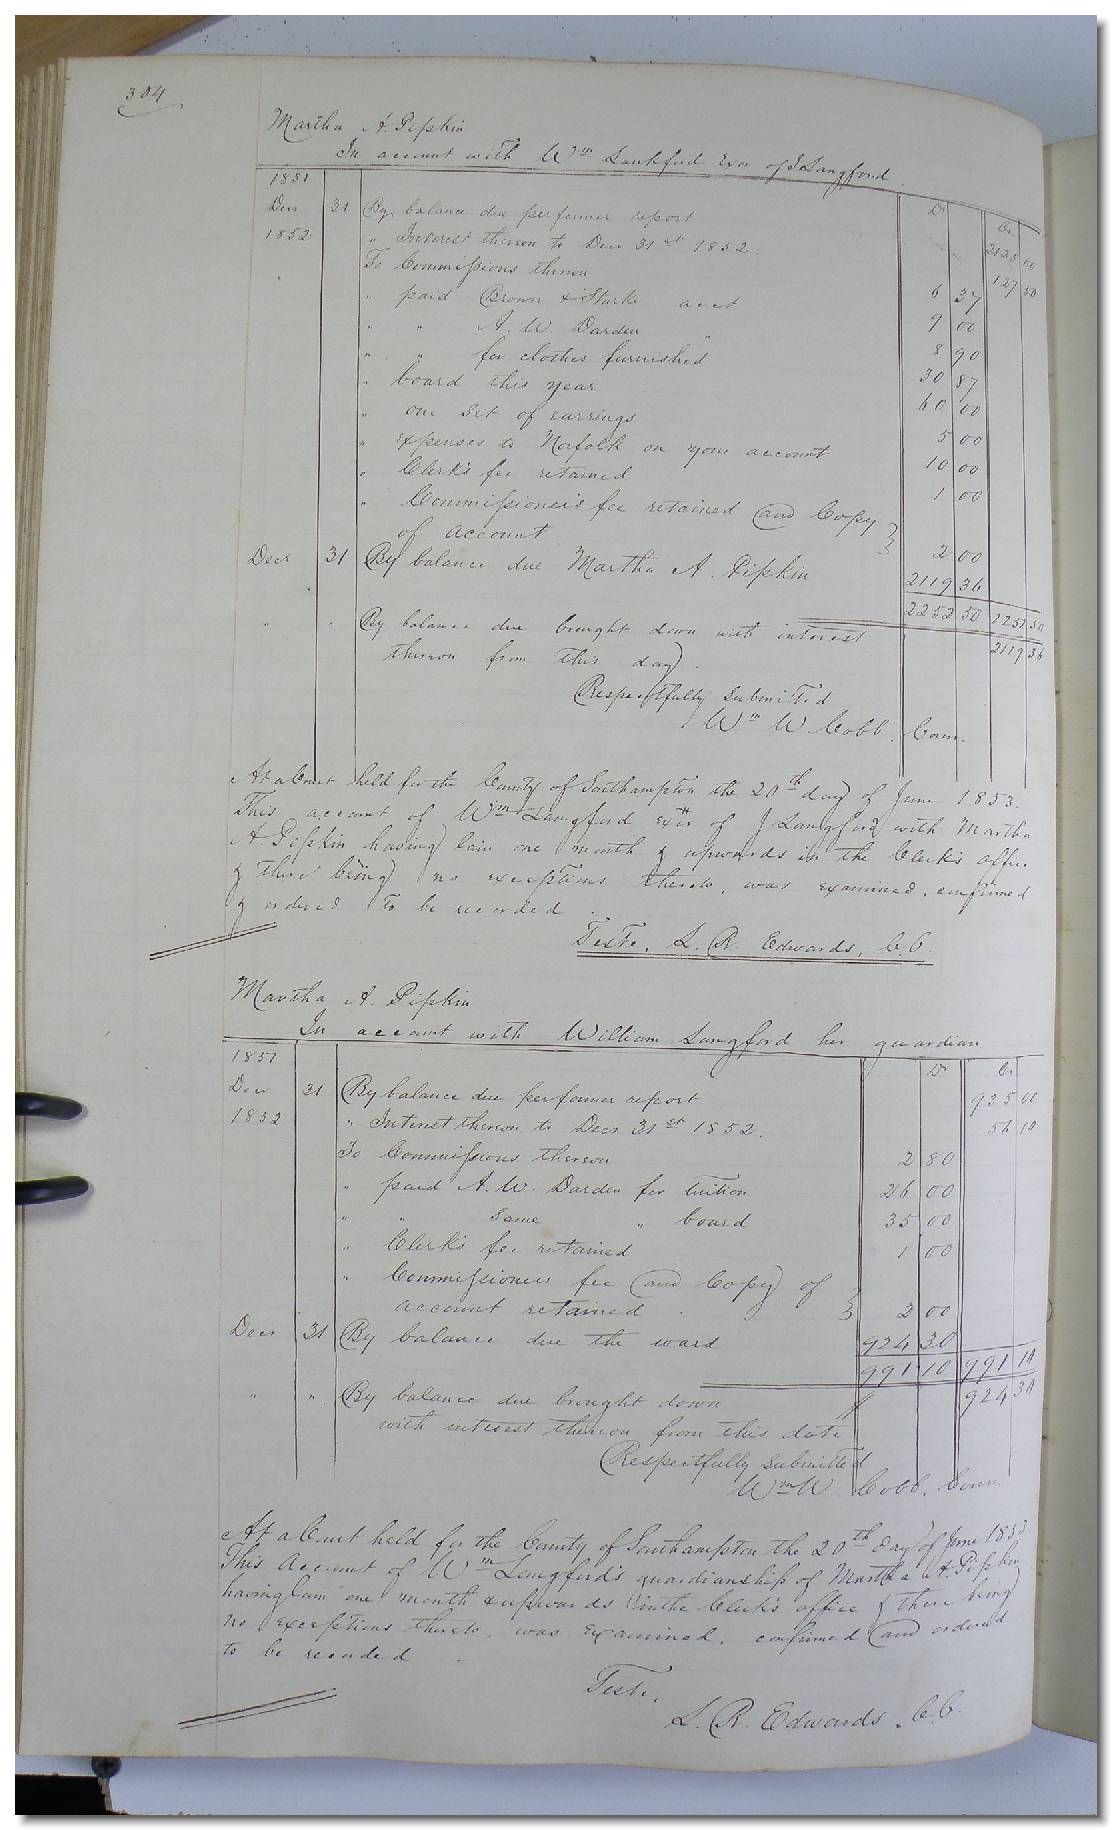 304
Martha A. Pipkin
In account with Wm Lankford Exor of J Langford
1851 Dr Cr
Decr 31 By balance due per former report 2125 00
1852 " Interest thereon to Decr 31st 1852. 127 50
To Commissions thereon 6 37
" paid Brown & Starke acct 9 00
" " A. W. Darden " 8 90
" " for clothes furnished 30 87
" board this year 60 00
" one set of earrings 5 00
" expenses to Norfolk on your account 10 00
" Clerk's fee retained 1 00
" Commissioner's fee retained and Copy
of account 2 00
Decr 31 By balance due Martha A. Pipkin 2119 36
2252 50 2252 50
" " By balance due brought down with interest 2119 36
thereon from this day.
Respectfully submitted
Wm W Cobb, Comr.
At a Court held for the County of Southampton the 20th day of June 1853.
This account of Wm Langford Exor of J Langford with Martha
A Pipkin having lain one month & upwards in the Clerk's office
& there being no exceptions thereto, was examined, confirmed
& ordered to be recorded.
Teste, L. R. Edwards, C.C.
Martha A. Pipkin
In account with William Langford her guardian
1851 Dr Cr
Decr 31 By balance due per former report 935 00
1852 " Interest thereon to Decr 31st 1852. 56 10
To Commissions thereon 2 80
" paid A. W. Darden for tuition 26 00
" " same " board 35 00
" Clerk's fee retained 1 00
" Commissioners fee and Copy of
account retained. 2 00
Decr 31 By balance due the ward 924 30
991 10 991 10
" " By balance due brought down 924 30
with interest thereon from this date
Respectfully submitted
Wm W Cobb, Comr.
At a Court held for the County of Southampton the 20th day of June 1853
This Account of Wm Langford's guardianship of Martha A. Pipkin
having lain one month & upwards in the Clerk's office & there being
no exceptions thereto, was examined, confirmed and ordered
to be recorded.
Teste,
L. R. Edwards, C.C.